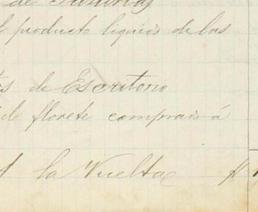 de
producto liquido de las
de Escritorio
de florete comprado á
A la Vuelta $